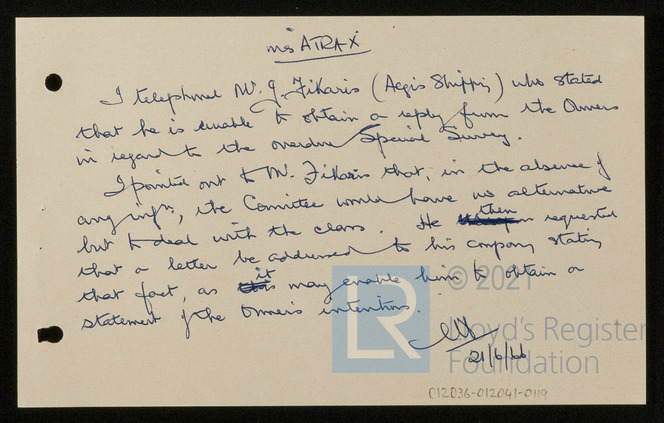 ms ATRAX
I telephoned Mr. G. Fikaris (Aegis Shipping) who stated
that he is unable to obtain a reply from the Owners
in regard to the overdue Special Survey.
I pointed out to Mr. Fikaris that, in the absence of
any infn, the Comittee would have no alternative
but to deal with the class. He then requested
that a letter be addressed to his company stating
that fact, as it may enable him to obtain a
statement of the Owner's intentions.
21/6/66
© 2021
LR
Lloyd's Register
Foundation
012036-012041-0119